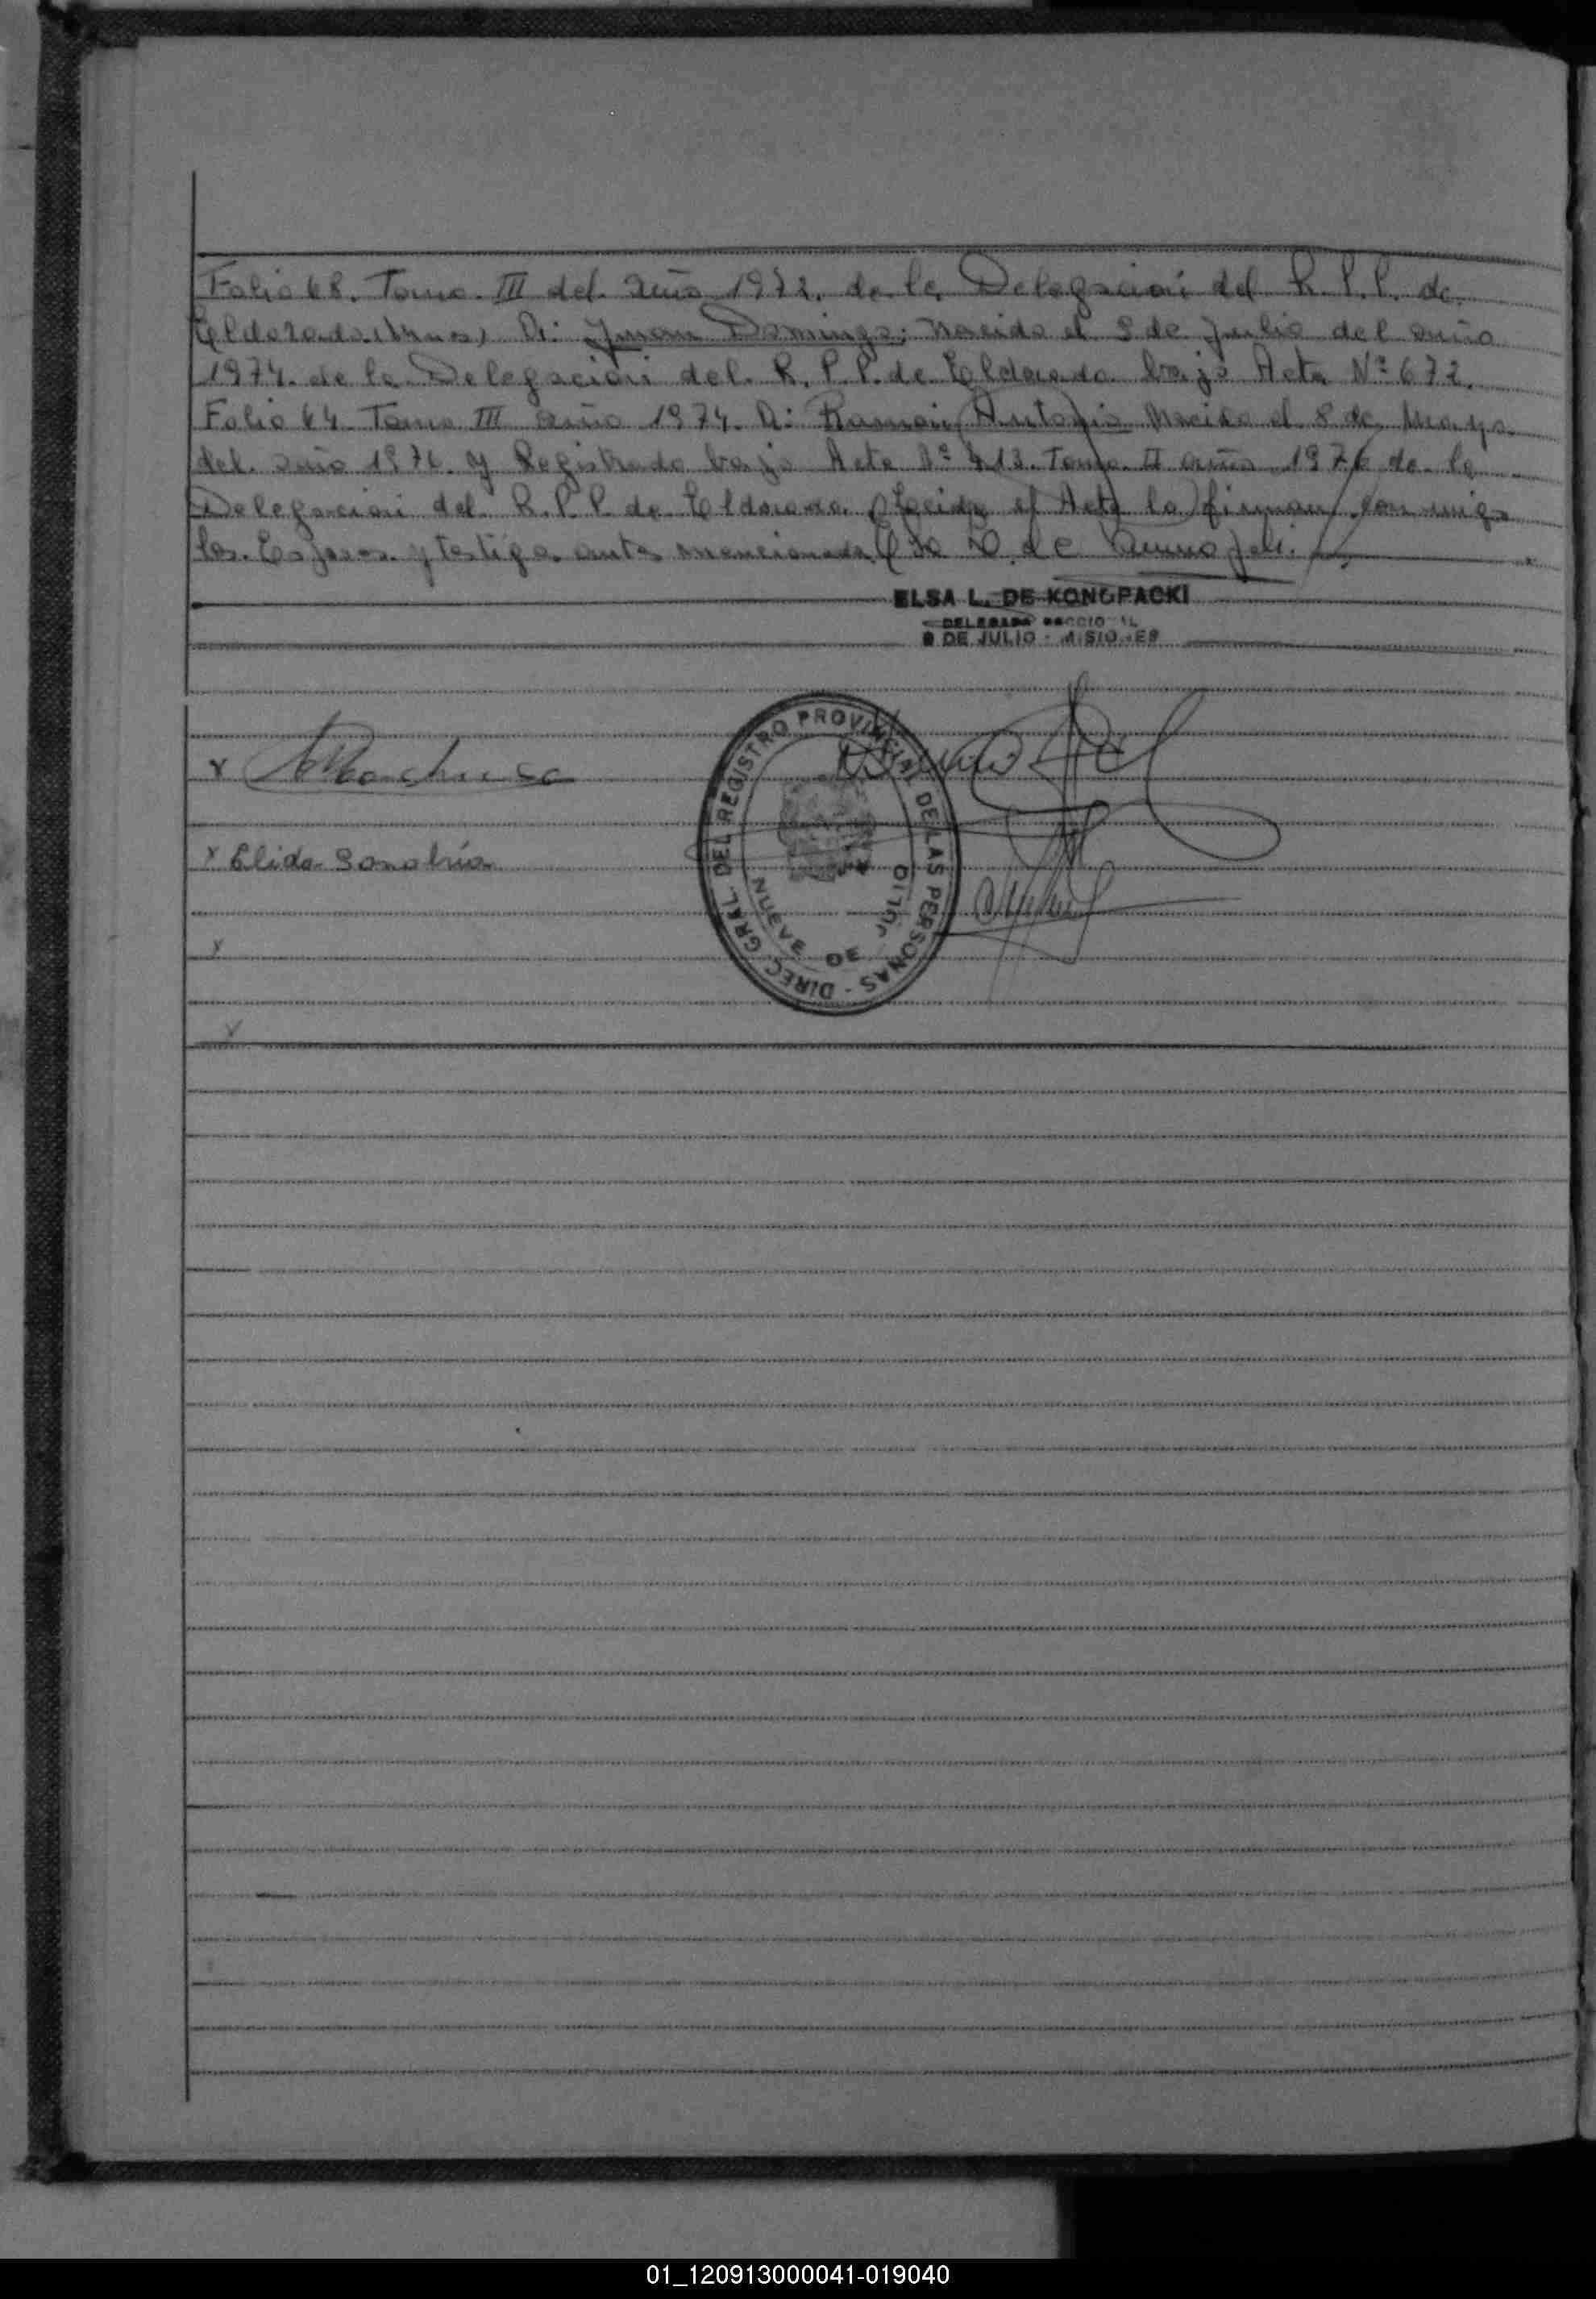 Folio 68. Tomo. III del. año 1972. de la Delegación del R.P.P. de
Eldorado. A: Juan Domingo; Nacido el 9 de Julio del año
1974. de la Delegación del R.P.P. de Eldorado bajo Acta Nº 672.
Folio 64 Tomo III año 1974. A: Ramón Antonio Nacido el 8 de Mayo
del año 1976. y Registrado bajo Acta Nº 413. Tomo II año 1976 de la
Delegación del R.P.P. de Eldorado. el Acta la firman conmigo
los Esposos y testigo antes mencionada
ELSA L. DE KONOPACKI
DELEGADA SECCIONAL
9 DE JULIO - MISIONES
Machuca
Elida Sanabria
DIREC. GRAL. DEL REGISTRO PROVINCIAL DE LAS PERSONAS
NUEVE DE JULIO
01_120913000041-019040